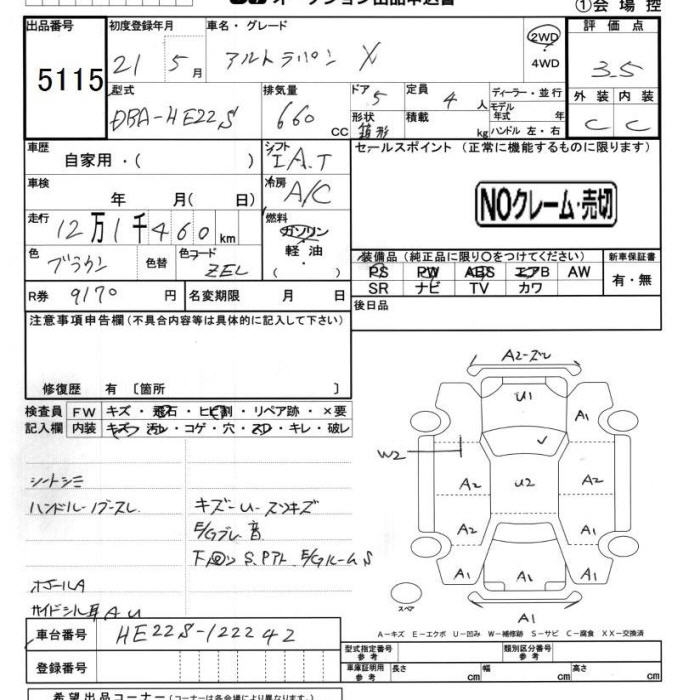 オークション出品申込書
①会場控
出品番号 初度登録年月 車名・グレード 2WD 4WD 評価点
5115 21 5月 アルトラパン X 3.5
型式 排気量 ドア 定員 ディーラー・並行 外装 内装
DBA-HE22S 660 CC 5 4人 モデル年式 年 C C
形状 箱形 積載 kg ハンドル 左・右
車歴 シフト セールスポイント (正常に機能するものに限ります)
自家用・( ) I A.T
車検 年 月( 日) 冷房 A/C
NOクレーム・売切
走行 12万1千460km 燃料 ガソリン 軽油 ( )
色 ブラウン 色替 色コード ZEL
装備品(純正品に限り○をつけてください) 新車保証書
PS PW ABS エアB AW 有・無
SR ナビ TV カワ
R券 9170円 名変期限 月 日
後日品
注意事項申告欄(不具合内容等は具体的に記入して下さい)
修復歴 有 〔箇所 〕
検査員 FW キズ・飛石・ヒビ割・リペア跡・×要
記入欄 内装 キズ・汚レ・コゲ・穴・スレ・キレ・破レ
シートシミ
ハンドル
キズ-U-スリキズ
E/Gブレ 音
E/GルームS
A U
A2
U1
A1
W2
A2
U2
A2
A2
A1
A1
A1
A1
スペア
A1
A-キズ E-エクボ U-凹み W-補修跡 S-サビ C-腐食 XX-交換済
車台番号 HE22S-122242
型式指定番号 参考 類別区分番号 参考
登録番号
車庫証明用 参考 長さ cm 幅 cm 高さ cm
希望出品コーナー(コーナーは各会場により異なります。)